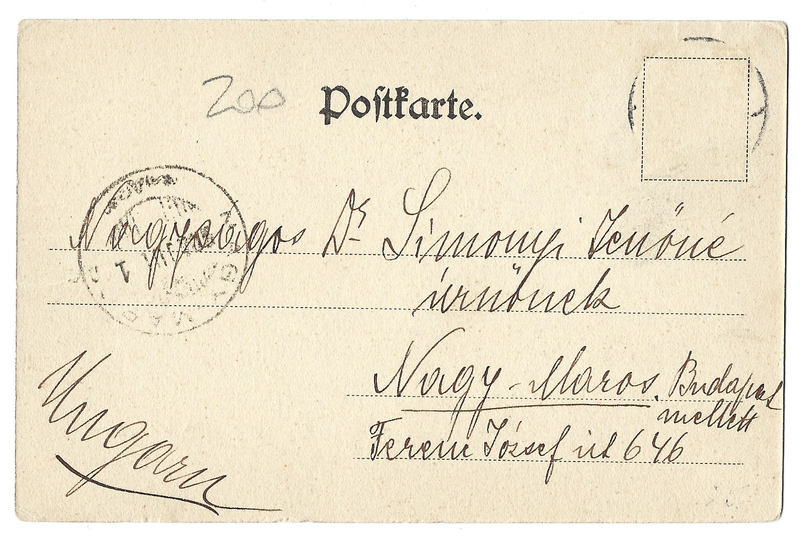 200
Postkarte.
Nagyságos Dr. Simonyi Jenőné
úrnőnek
Nagy-Maros. Budapest
mellett
Ferenc József út 646
Ungarn